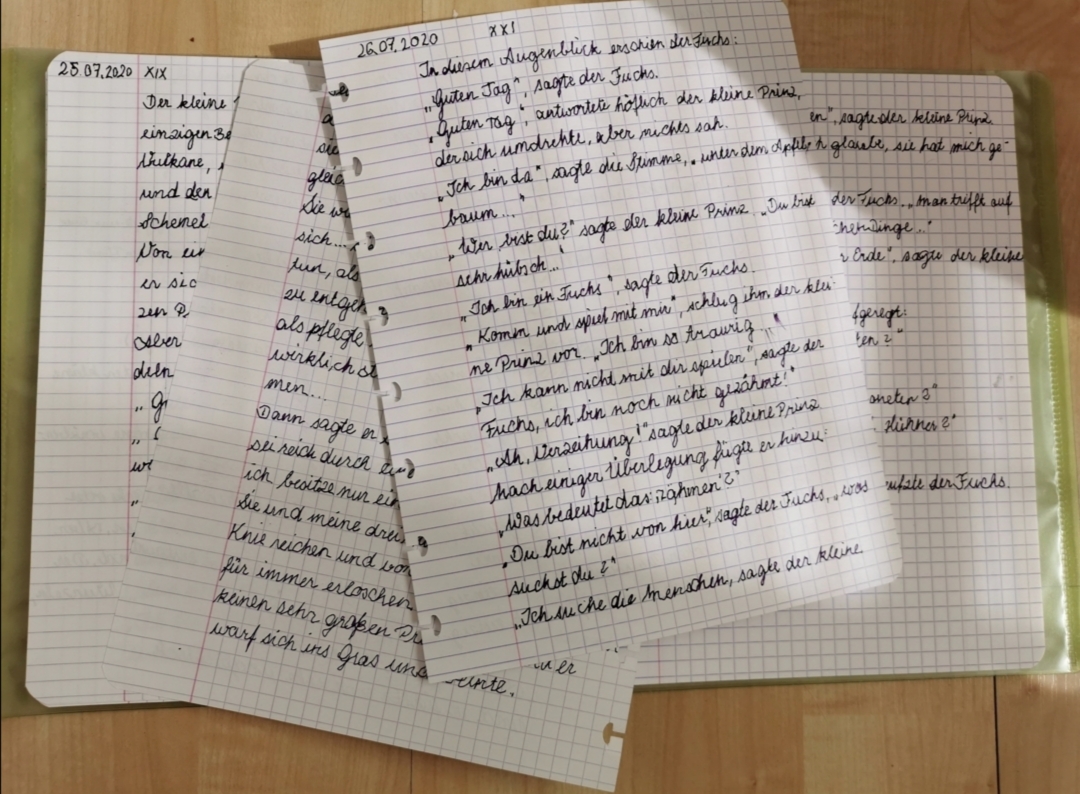 25.07.2020 XIX
Der kleine
einzigen Be
Vulkane,
und den
Schemel
Von
er sic
zen P
Aber
deln
„G
a
sic
gleic
Sie w
sich...
tun, als
zu entgeh
als pflegte
wirklich st
men...
Dann sagte er
sei reich durch
ich besitze nur ein
Sie und meine drei
Knie reichen und von
für immer erloschen
keinen sehr großen Pr
warf sich ins Gras und weinte.
26.07.2020 XXI
In diesem Augenblick erschien der Fuchs:
„Guten Tag“, sagte der Fuchs.
„Guten Tag“, antwortete höflich der kleine Prinz,
der sich umdrehte, aber nichts sah.
„Ich bin da“, sagte die Stimme, „unter dem Apfel-
baum...“
„Wer bist du?“ sagte der kleine Prinz. „Du bist
sehr hübsch...“
„Ich bin ein Fuchs“, sagte der Fuchs.
„Komm und spiel mit mir“, schlug ihm der klei-
ne Prinz vor. „Ich bin so traurig...“
„Ich kann nicht mit dir spielen“, sagte der
Fuchs, ich bin noch nicht gezähmt!“
„Ah, Verzeihung!“ sagte der kleine Prinz
Nach einiger Überlegung fügte er hinzu:
„Was bedeutet das: zähmen?“
„Du bist nicht von hier“, sagte der Fuchs, „was
suchst du?“
„Ich suche die Menschen, sagte der kleine
en“, sagte der kleine Prinz
h glaube, sie hat mich ge-
der Fuchs. „man trifft auf
Dinge...“
Erde“, sagte der kleine
fgeregt:
en?“
aneten?“
Hühner?“
ufzte der Fuchs.
er